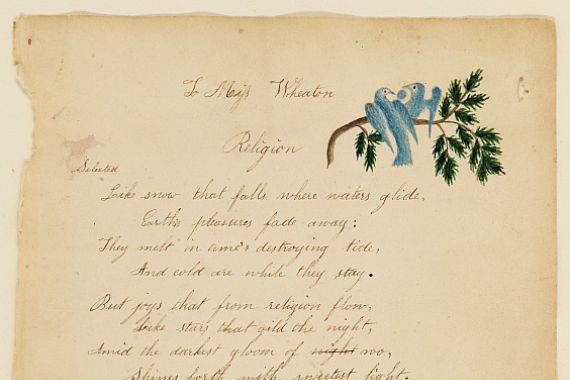 To Miss Wheaton
Religion
Selected
Like snow that falls where waters glide,
Earth's pleasures fade away:
They melt in time's destroying tide,
And cold are while they stay.
But joys that from religion flow,
Like stars that gild the night,
Amid the darkest gloom of night woo,
Shines forth with sweetest light.